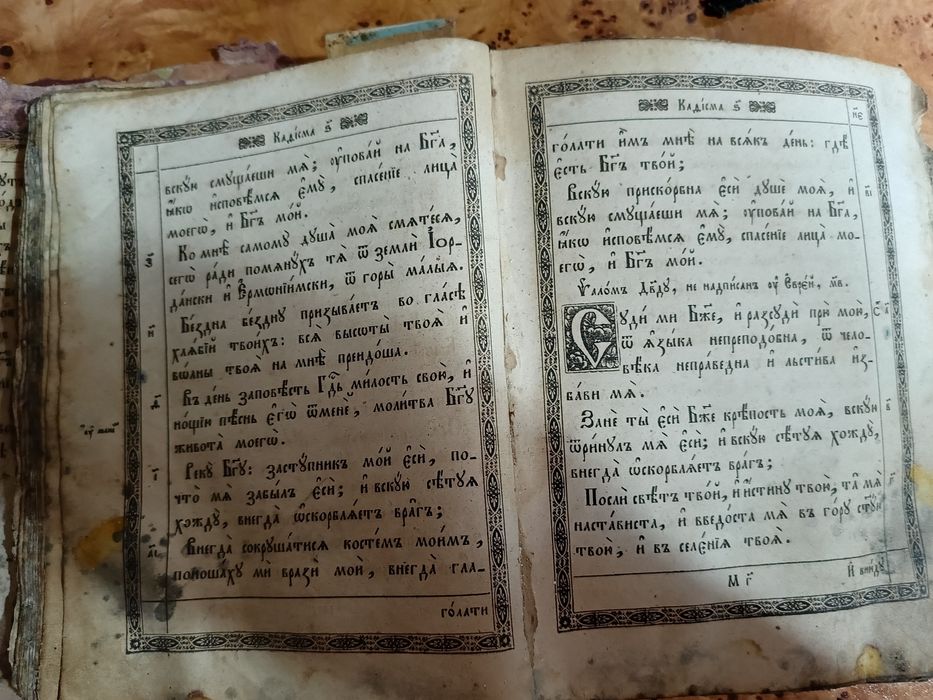 Каѳі́сма ѕ҃
вскꙋю смꙋща́еши мѧ̀; ᲂу҆пова́й на Бг҃а,
ꙗ҆́кѡ и҆сповѣ́мсѧ є҆мꙋ̀, спасе́нїе лица̀
моегѡ̀, и҆ Бг҃ъ мо́й.
Ко мнѣ̀ самомꙋ̀ дꙋша̀ моѧ̀ смѧте́сѧ,
сегѡ̀ ра́ди помѧнꙋ́хъ тѧ̀ ѿ землѝ І҆ор-
да́нски и҆ Є҆рмѡнїи́мски, ѿ горы̀ ма́лыѧ.
з҃
Бе́здна бе́зднꙋ призыва́етъ во гла́сѣ
хлѧ́бїй твои́хъ: всѧ̀ высѡты̀ твоѧ̀ и҆
вѡ́лны твоѧ̀ на мнѣ̀ преидо́ша.
и҃
Въ де́нь заповѣ́сть Гдⷭ҇ь ми́лость свою̀, и҆
но́щїю пѣ́снь є҆гѡ̀ ѿ менѐ, моли́тва Бг҃ꙋ
живота̀ моегѡ̀.
ѳ҃
Рекꙋ̀ Бг҃ꙋ: застꙋ́пникъ мо́й є҆сѝ, по-
что̀ мѧ̀ забы́лъ є҆сѝ; и҆ вскꙋ́ю сѣ́тꙋѧ
хождꙋ̀, внегда̀ ѡ҆скорблѧ́етъ вра́гъ;
і҃
Внегда̀ сокрꙋша́тисѧ косте́мъ мои̑мъ,
поноша́хꙋ мѝ вразѝ моѝ, внегда̀ гла-
а҃і
го́лати
Каѳі́сма ѕ҃
н҃є
го́лати и҆̀мъ мнѣ̀ на всѧ́къ де́нь: гдѣ̀
є҆́сть Бг҃ъ тво́й;
Вскꙋ́ю приско́рбна є҆сѝ дꙋшѐ моѧ̀, и҆
в҃і
вскꙋ́ю смꙋща́еши мѧ̀; ᲂу҆пова́й на Бг҃а,
ꙗ҆́кѡ и҆сповѣ́мсѧ є҆мꙋ̀, спасе́нїе лица̀ мо-
егѡ̀, и҆ Бг҃ъ мо́й.
Ѱало́мъ Дв҃дꙋ, не надпи́санъ ᲂу҆ Є҆вре́й, м҃в.
Сꙋди́ ми Бж҃е, и҆ разсꙋдѝ прѝ мою̀,
ѿ ꙗ҆зы́ка непреподо́бна, ѿ чело-
вѣ́ка непра́ведна и҆ льсти́ва и҆з-
ба́ви мѧ̀.
Занѐ ты̀ є҆сѝ Бж҃е крѣ́пость моѧ̀, вскꙋ́ю
в҃
ѿри́нꙋлъ мѧ̀ є҆сѝ; и҆ вскꙋ́ю сѣ́тꙋѧ хождꙋ̀,
внегда̀ ѡ҆скорблѧ́етъ вра́гъ;
Послѝ свѣ́тъ тво́й, и҆ и҆́стинꙋ твою̀, та̑ мѧ̀
г҃
наста́виста, и҆ введо́ста мѧ̀ въ го́рꙋ ст҃ꙋ́ю
твою̀, и҆ въ селє́нїѧ твоѧ̑.
М г҃
И҆ вни́дꙋ